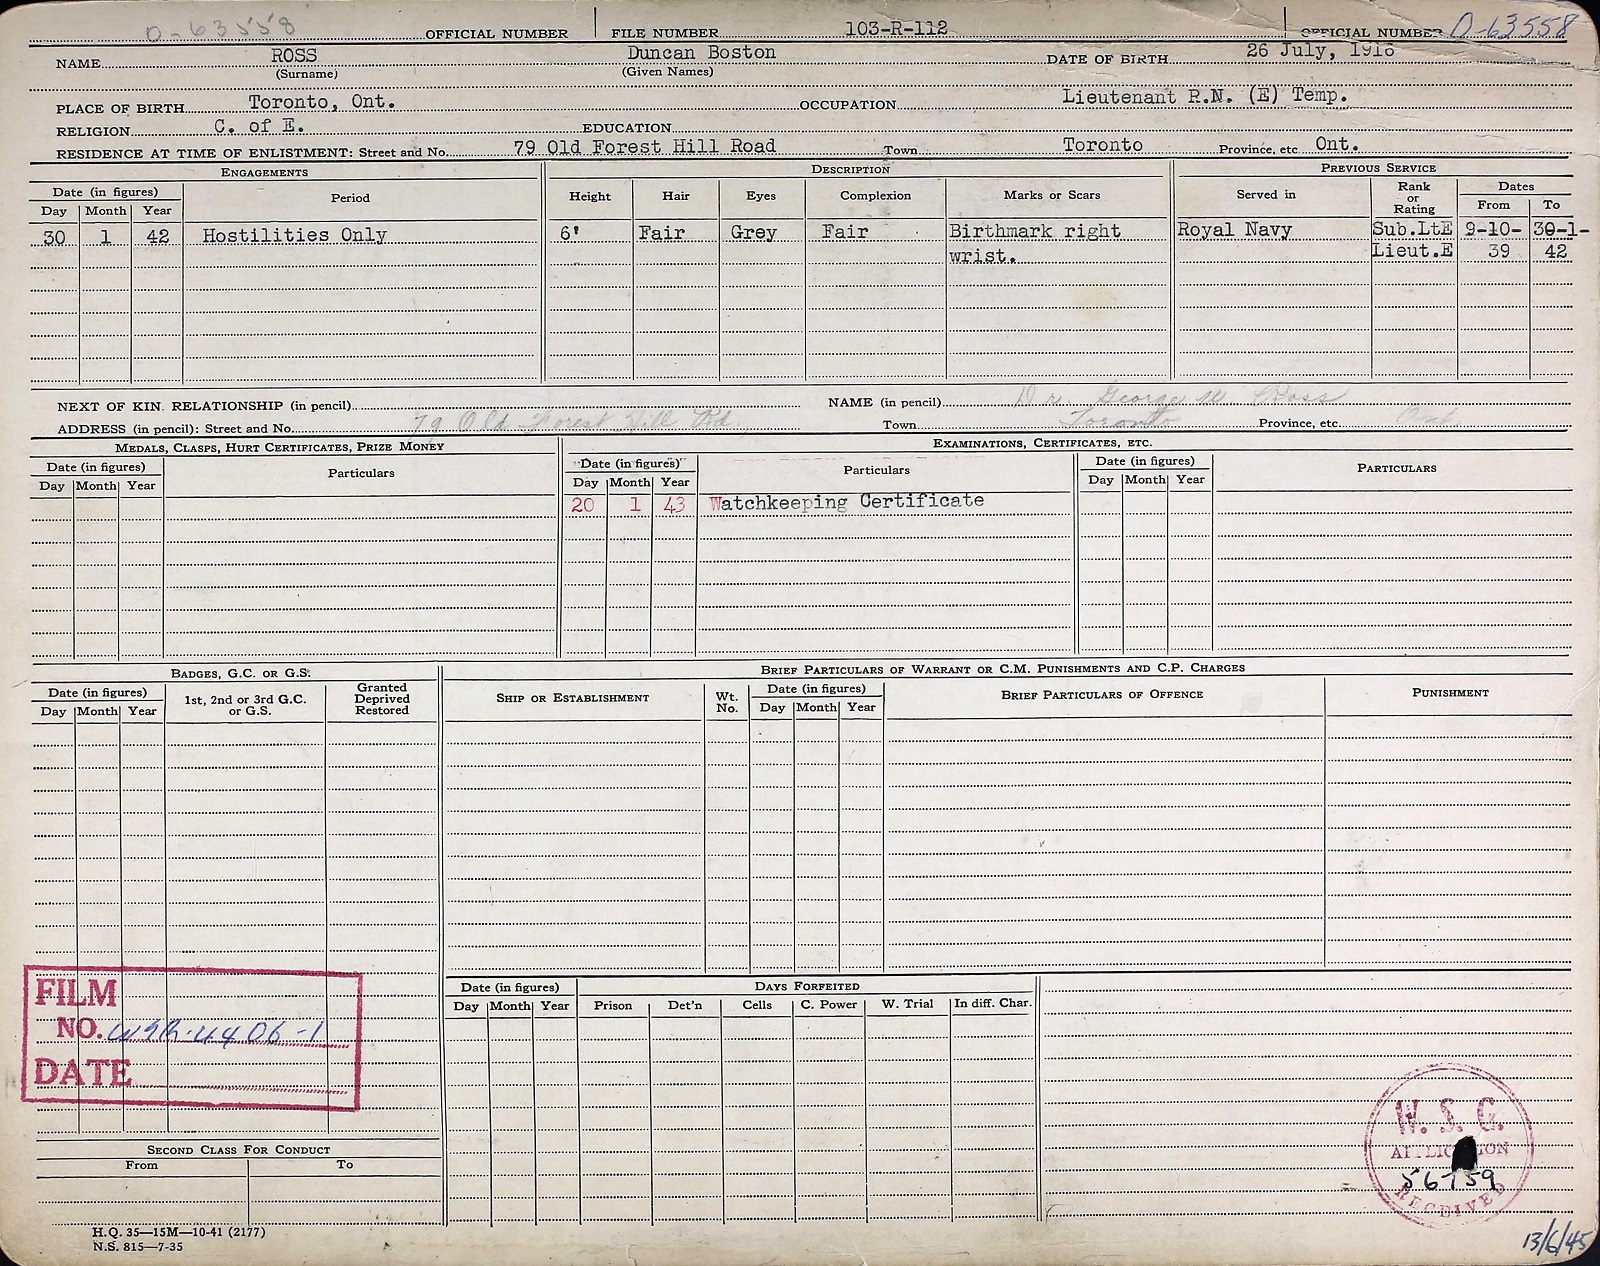 O-63558 OFFICIAL NUMBER FILE NUMBER 103-R-112 OFFICIAL NUMBER O-63558
NAME ROSS Duncan Boston DATE OF BIRTH 26 July, 1916
(Surname) (Given Names)
PLACE OF BIRTH Toronto, Ont. OCCUPATION Lieutenant R.N. (E) Temp.
RELIGION C. of E. EDUCATION
RESIDENCE AT TIME OF ENLISTMENT: Street and No. 79 Old Forest Hill Road Town Toronto Province, etc Ont.
ENGAGEMENTS DESCRIPTION PREVIOUS SERVICE
Date (in figures) Period Height Hair Eyes Complexion Marks or Scars Served in Rank or Rating Dates
Day Month Year From To
30 1 42 Hostilities Only 6' Fair Grey Fair Birthmark right Royal Navy Sub.LtE 9-10- 30-1-
wrist. Lieut.E 39 42
NEXT OF KIN. RELATIONSHIP (in pencil) NAME (in pencil) Dr. George W. Ross
ADDRESS (in pencil): Street and No. 79 Old Forest Hill Rd Town Toronto Province, etc. Ont
MEDALS, CLASPS, HURT CERTIFICATES, PRIZE MONEY EXAMINATIONS, CERTIFICATES, ETC.
Date (in figures) Particulars Date (in figures) Particulars Date (in figures) PARTICULARS
Day Month Year Day Month Year Day Month Year
20 1 43 Watchkeeping Certificate
BADGES, G.C. OR G.S. BRIEF PARTICULARS OF WARRANT OR C.M. PUNISHMENTS AND C.P. CHARGES
Date (in figures) 1st, 2nd or 3rd G.C. or G.S. Granted Deprived Restored SHIP OR ESTABLISHMENT Wt. No. Date (in figures) BRIEF PARTICULARS OF OFFENCE PUNISHMENT
Day Month Year Day Month Year
FILM
NO. WSR-4406-1
DATE
Date (in figures) DAYS FORFEITED
Day Month Year Prison Det'n Cells C. Power W. Trial In diff. Char.
W. S. G.
APPLICATION
56759
RECEIVED
SECOND CLASS FOR CONDUCT
From To
H.Q. 35—15M—10-41 (2177)
N.S. 815—7-35
13/6/45